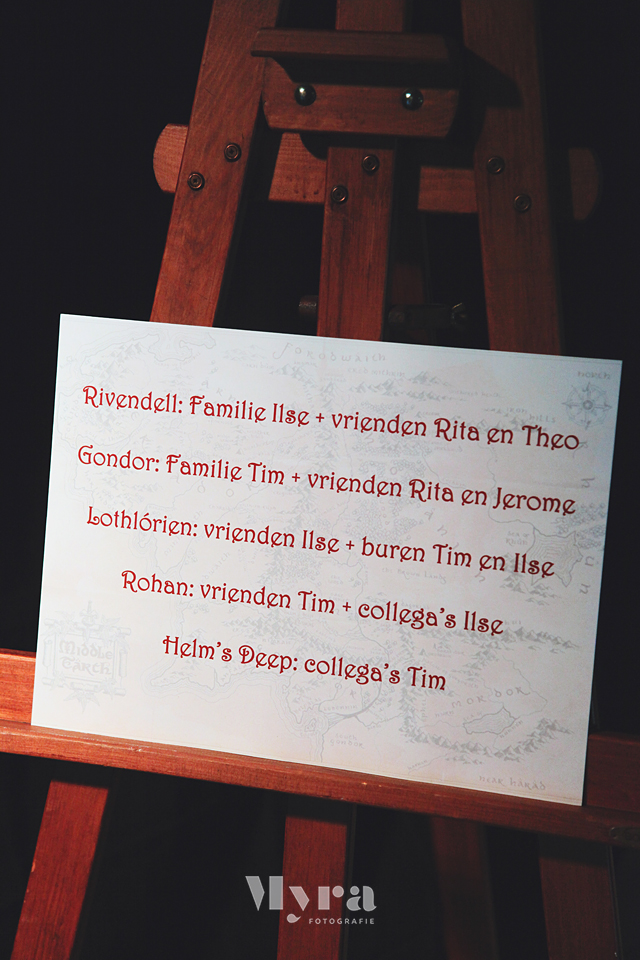 Forodwaith
North
Rivendell: Familie Ilse + vrienden Rita en Theo
Gondor: Familie Tim + vrienden Rita en Jerome
Lothlórien: vrienden Ilse + buren Tim en Ilse
Rohan: vrienden Tim + collega's Ilse
Helm's Deep: collega's Tim
Middle
Earth
MORDOR
NEAR HARAD
Myra
FOTOGRAFIE